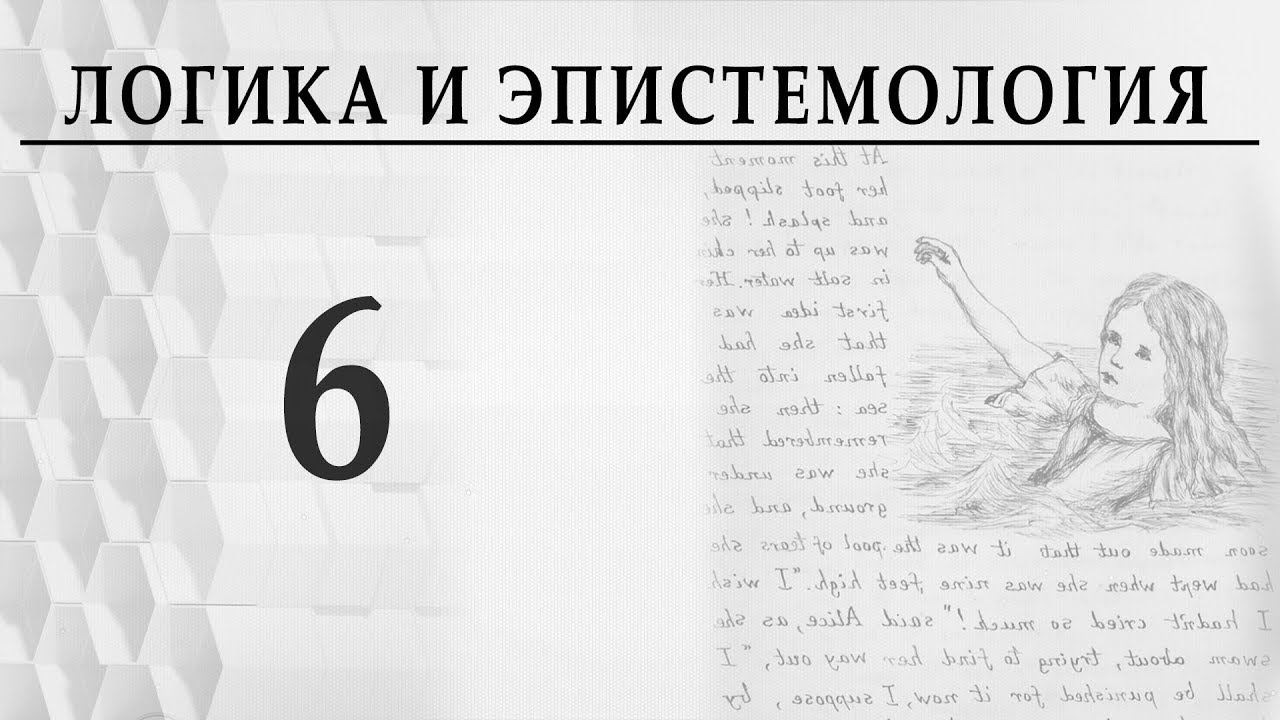 ЛОГИКА И ЭПИСТЕМОЛОГИЯ
6
At this moment
her foot slipped,
and splash! she
was up to her chin
in salt water. Her
first idea was
that she had
fallen into the
sea: then she
remembered that
she was under
ground, and she
soon made out that it was the pool of tears she
had wept when she was nine feet high. "I wish
I hadn't cried so much!" said Alice, as she
swam about, trying to find her way out, "I
shall be punished for it now, I suppose, by